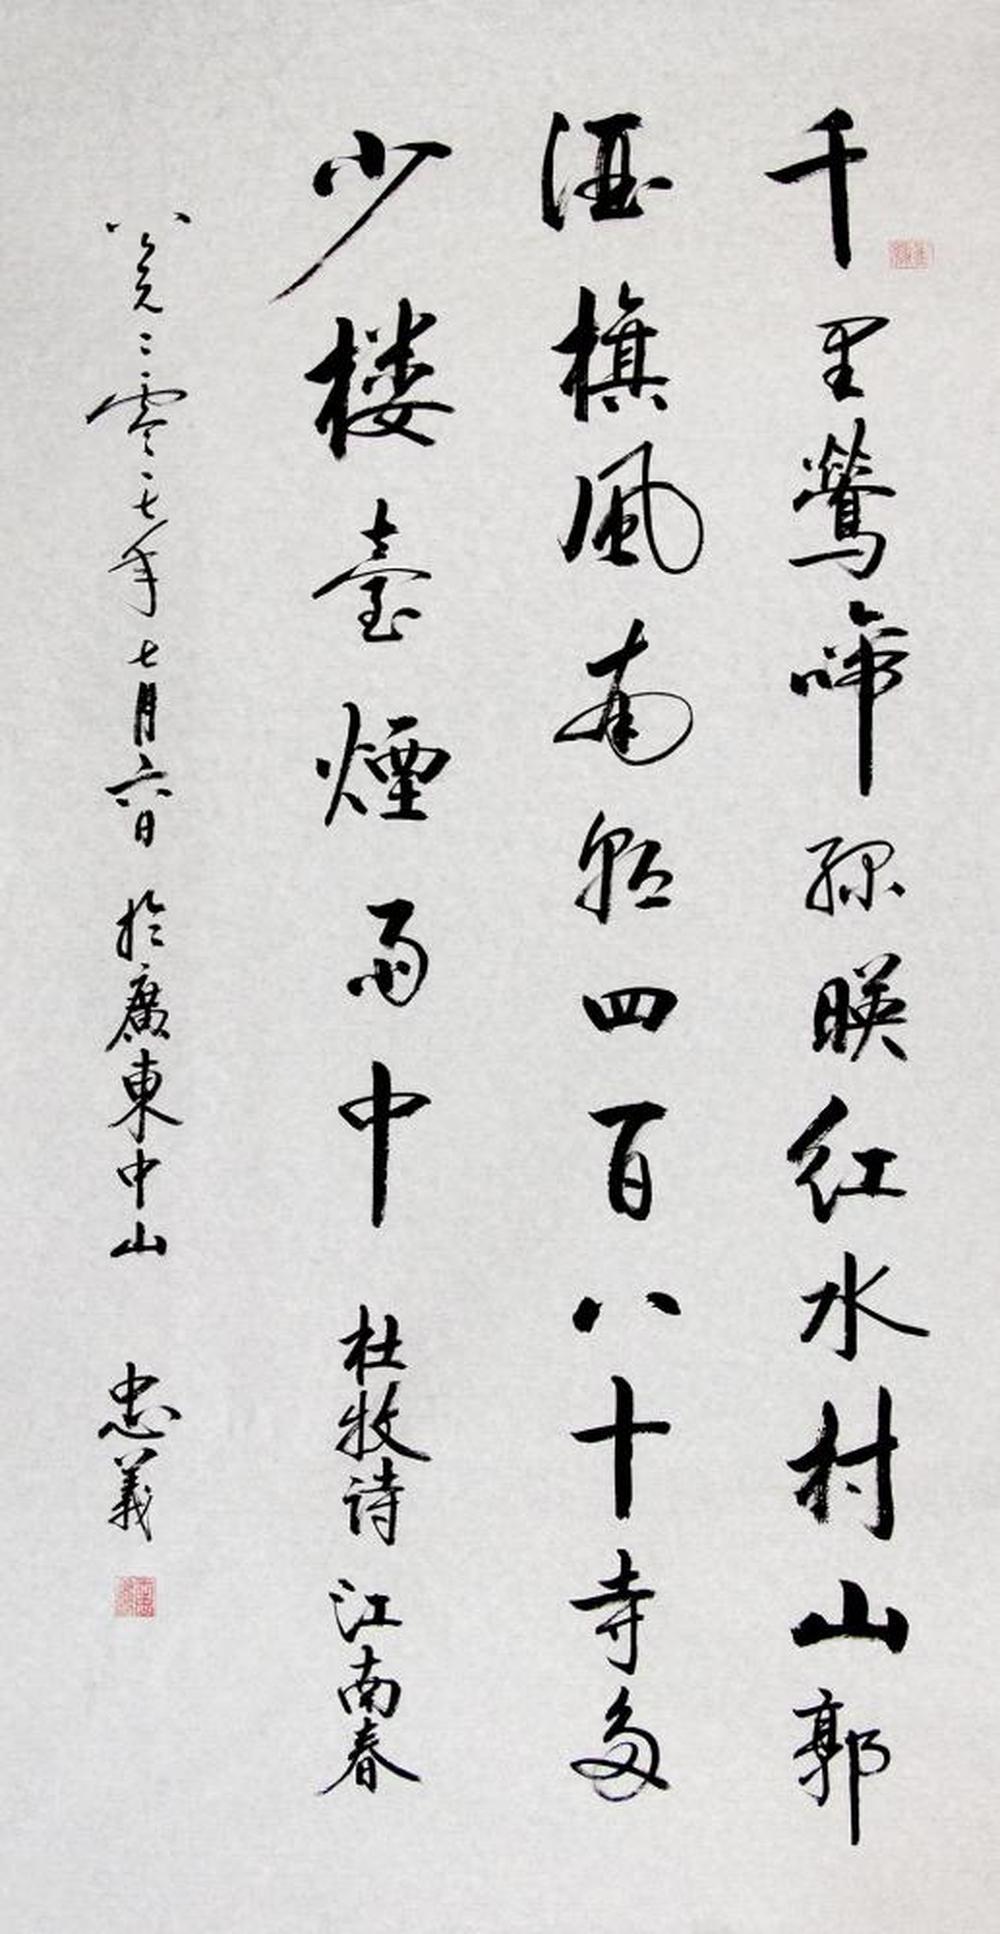 千里鶯啼绿暎红水村山郭
酒旗風南朝四百八十寺多
少楼臺煙雨中 杜牧诗 江南春
公元二零一七年七月六日 於廣東中山 忠義